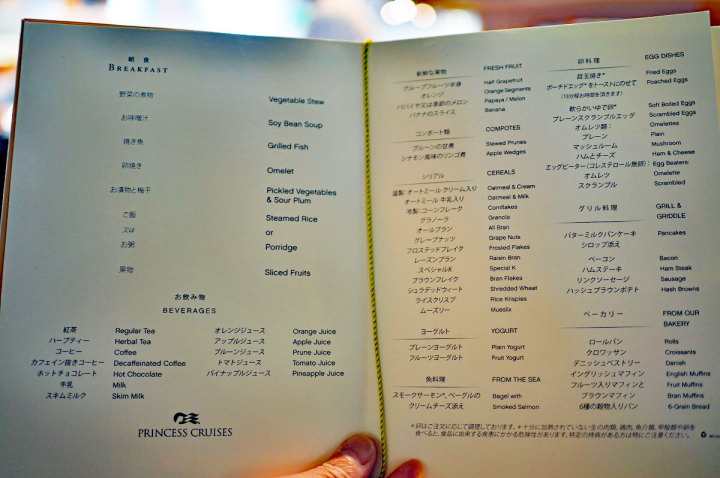 朝 食
BREAKFAST
野菜の煮物 Vegetable Stew
お味噌汁 Soy Bean Soup
焼き魚 Grilled Fish
卵焼き Omelet
お漬物と梅干 Pickled Vegetables
& Sour Plum
ご飯 Steamed Rice
又は or
お粥 Porridge
果物 Sliced Fruits
お飲み物
BEVERAGES
紅茶 Regular Tea オレンジジュース Orange Juice
ハーブティー Herbal Tea アップルジュース Apple Juice
コーヒー Coffee プルーンジュース Prune Juice
カフェイン抜きコーヒー Decaffeinated Coffee トマトジュース Tomato Juice
ホットチョコレート Hot Chocolate パイナップルジュース Pineapple Juice
牛乳 Milk
スキムミルク Skim Milk
PRINCESS CRUISES
新鮮な果物 FRESH FRUIT
グループフルーツ半身 Half Grapefruit
オレンジ Orange Segments
パパイヤ又は季節のメロン Papaya / Melon
バナナのスライス Banana
コンポート類 COMPOTES
プルーンの甘煮 Stewed Prunes
シナモン風味のリンゴ煮 Apple Wedges
シリアル CEREALS
温製：オートミール クリーム入り Oatmeal & Cream
オートミール 牛乳入り Oatmeal & Milk
冷製：コーンフレーク Cornflakes
グラノーラ Granola
オールブラン All Bran
グレープナッツ Grape Nuts
フロステッドフレイク Frosted Flakes
レーズンブラン Raisin Bran
スペシャルK Special K
ブラウンフレイク Bran Flakes
シュラデッドウィート Shredded Wheat
ライスクリスプ Rice Krispies
ムーズリー Mueslix
ヨーグルト YOGURT
プレーンヨーグルト Plain Yogurt
フルーツヨーグルト Fruit Yogurt
魚料理 FROM THE SEA
スモークサーモン*、ベーグルの Bagel with
クリームチーズ添え Smoked Salmon
卵料理 EGG DISHES
目玉焼き* Fried Eggs
ポーチドエッグ*をトーストにのせて Poached Eggs
(15分程お時間を頂きます)
軟らかいゆで卵* Soft Boiled Eggs
プレーンスクランブルエッグ Scrambled Eggs
オムレツ類： Omelettes
プレーン Plain
マッシュルーム Mushroom
ハムとチーズ Ham & Cheese
エッグビーター(コレステロール無卵)： Egg Beaters:
オムレツ Omelette
スクランブル Scrambled
グリル料理 GRILL &
GRIDDLE
バターミルクパンケーキ Pancakes
シロップ添え
ベーコン Bacon
ハムステーキ Ham Steak
リンクソーセージ Sausage
ハッシュブラウンポテト Hash Browns
ベーカリー FROM OUR
BAKERY
ロールパン Rolls
クロワッサン Croissants
デニッシュペストリー Danish
イングリッシュマフィン English Muffins
フルーツ入りマフィンと Fruit Muffins
ブラウンマフィン Bran Muffins
6種の穀物入りパン 6-Grain Bread
*卵はご注文に応じて調理しております。*十分に加熱されていない生の肉類、鶏肉、魚介類、甲殻類や卵を
食べると、食品に由来する疾患にかかる危険性があります。特定の持病がある方は特にご注意ください。